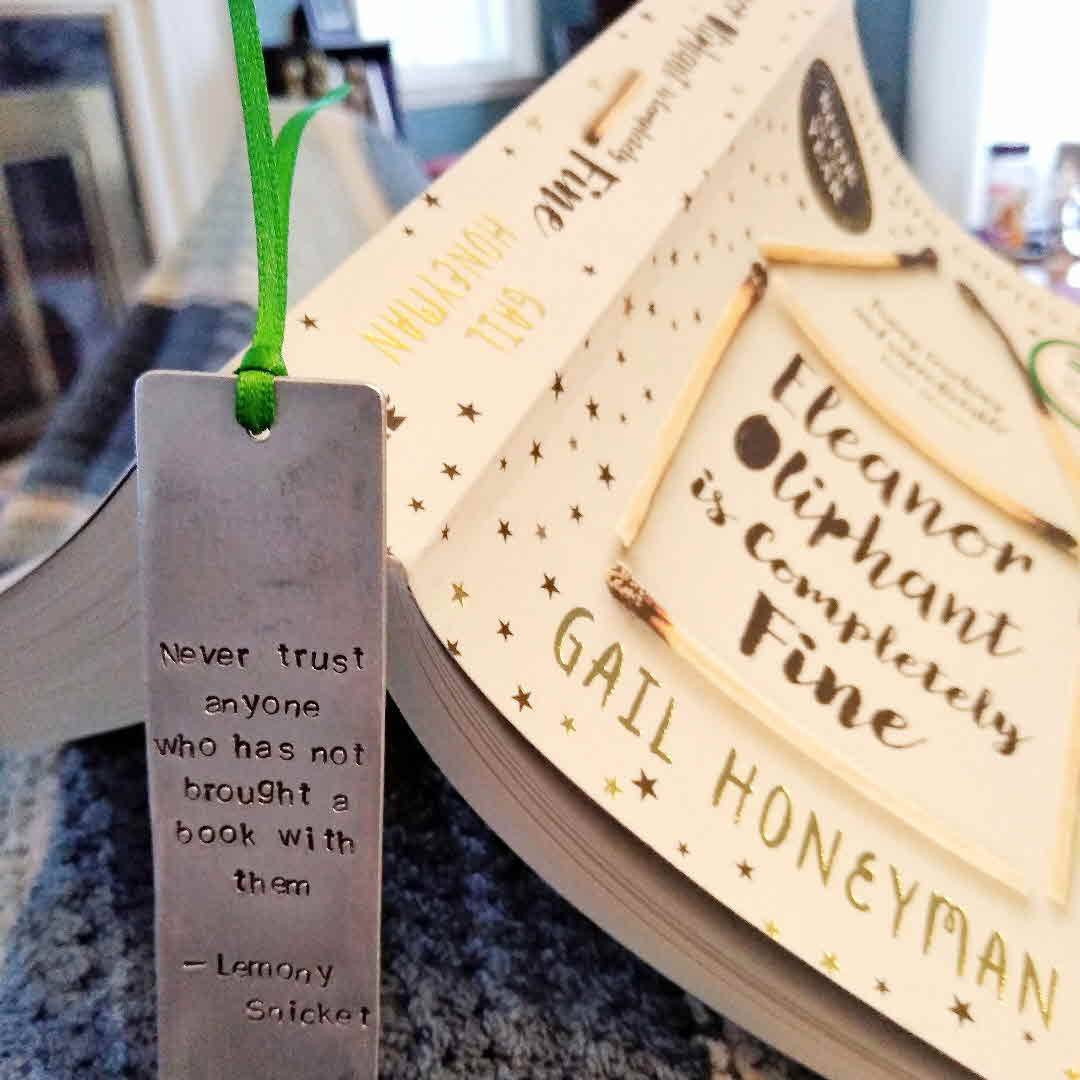 Never trust
anyone
who has not
brought a
book with
them
— Lemony
Snicket
Eleanor
Oliphant
is Completely
Fine
GAIL HONEYMAN
Oliphant is Completely
Fine
GAIL
HONEYMAN